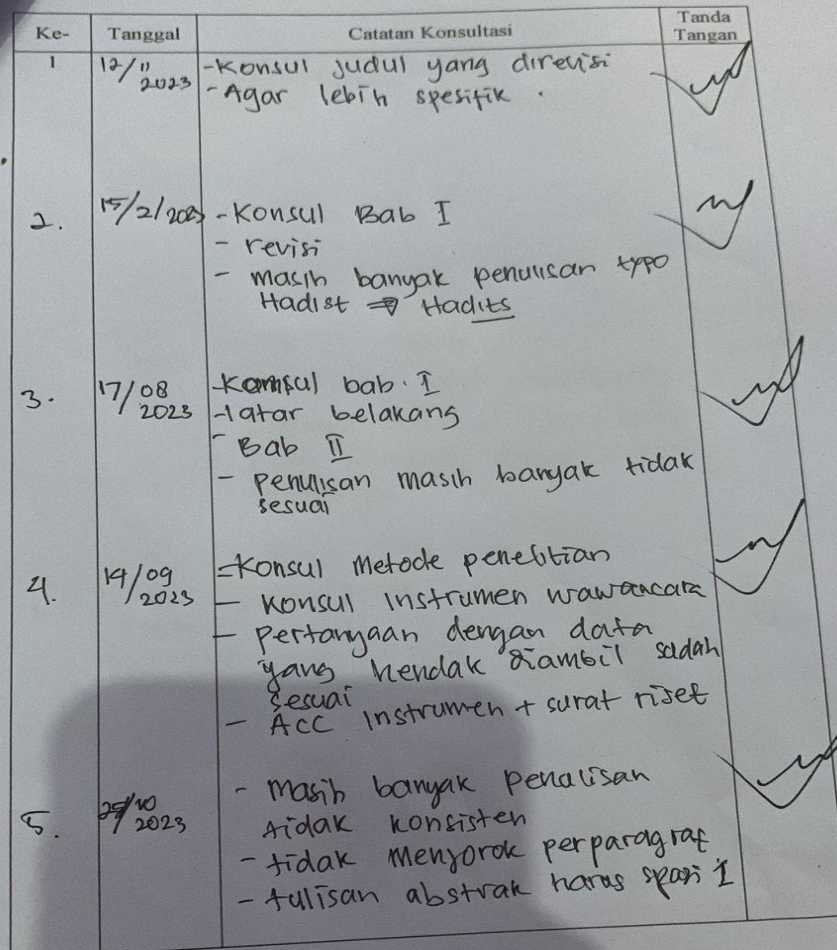 Ke- Tanggal Catatan Konsultasi Tanda Tangan
1 12/11 2023 -Konsul judul yang direvisi
-Agar lebih spesifik .
2. 15/2/2023 -Konsul Bab I
- revisi
- masih banyak penulisan typo
Hadist ⇒ Hadits
3. 17/08 2023 -Konsul bab. I
-latar belakang
- Bab II
- penulisan masih banyak tidak
sesuai
4. 14/09 2023 -Konsul Metode penelitian
- Konsul Instrumen wawancara
- pertanyaan dengan data
yang hendak diambil sudah
sesuai
- ACC Instrumen + surat riset
5. 2023 - masih banyak penulisan
tidak konsisten
- tidak menjorok perparagraf
- tulisan abstrak harus spasi 1